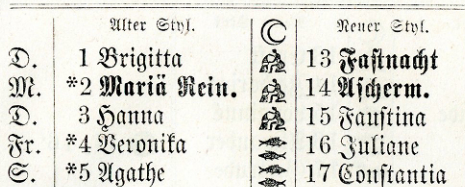 Alter Styl. Neuer Styl.
D. 1 Brigitta 13 Fastnacht
M. *2 Mariä Rein. 14 Ascherm.
D. 3 Hanna 15 Faustina
Fr. *4 Veronika 16 Juliane
S. *5 Agathe 17 Constantia